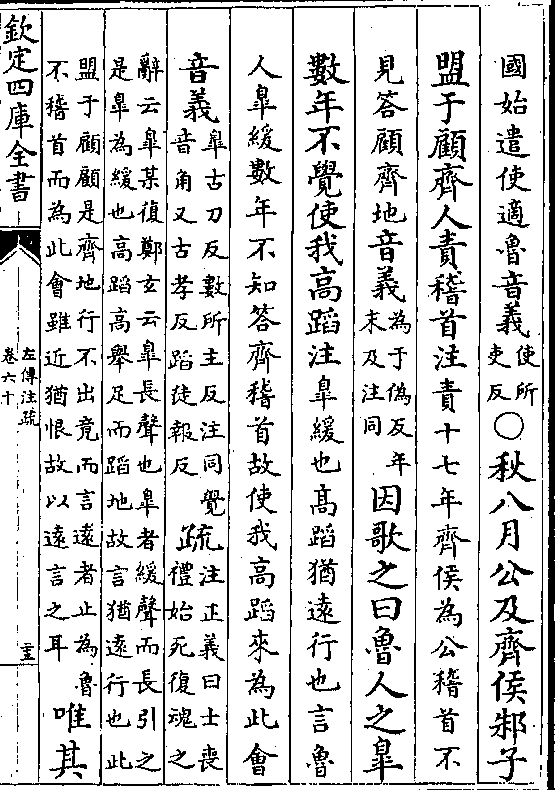 國始遣使適魯音義使所吏反○秋八月公及齊侯邾子
盟于顧齊人責稽首注責十七年齊侯為公稽首不
見答顧齊地音義為于偽反年末及注同因歌之曰魯人之皐
數年不覺使我高蹈注皐緩也高蹈猶遠行也言魯
人皐緩數年不知答齊稽首故使我高蹈來為此會
音義皐古刀反數所主反注同覺音角又古孝反蹈徒報反疏注正義曰士喪禮始死復魂之
辭云皐某復鄭玄云皐長聲也皐者緩聲而長引之
是皐為緩也高蹈高舉足而蹈地故言猶遠行也此
盟于顧顧是齊地行不出竟而言遠者止為魯
不稽首而為此會雖近猶恨故以遠言之耳唯其
欽定四庫全書
左傳注疏
卷六十